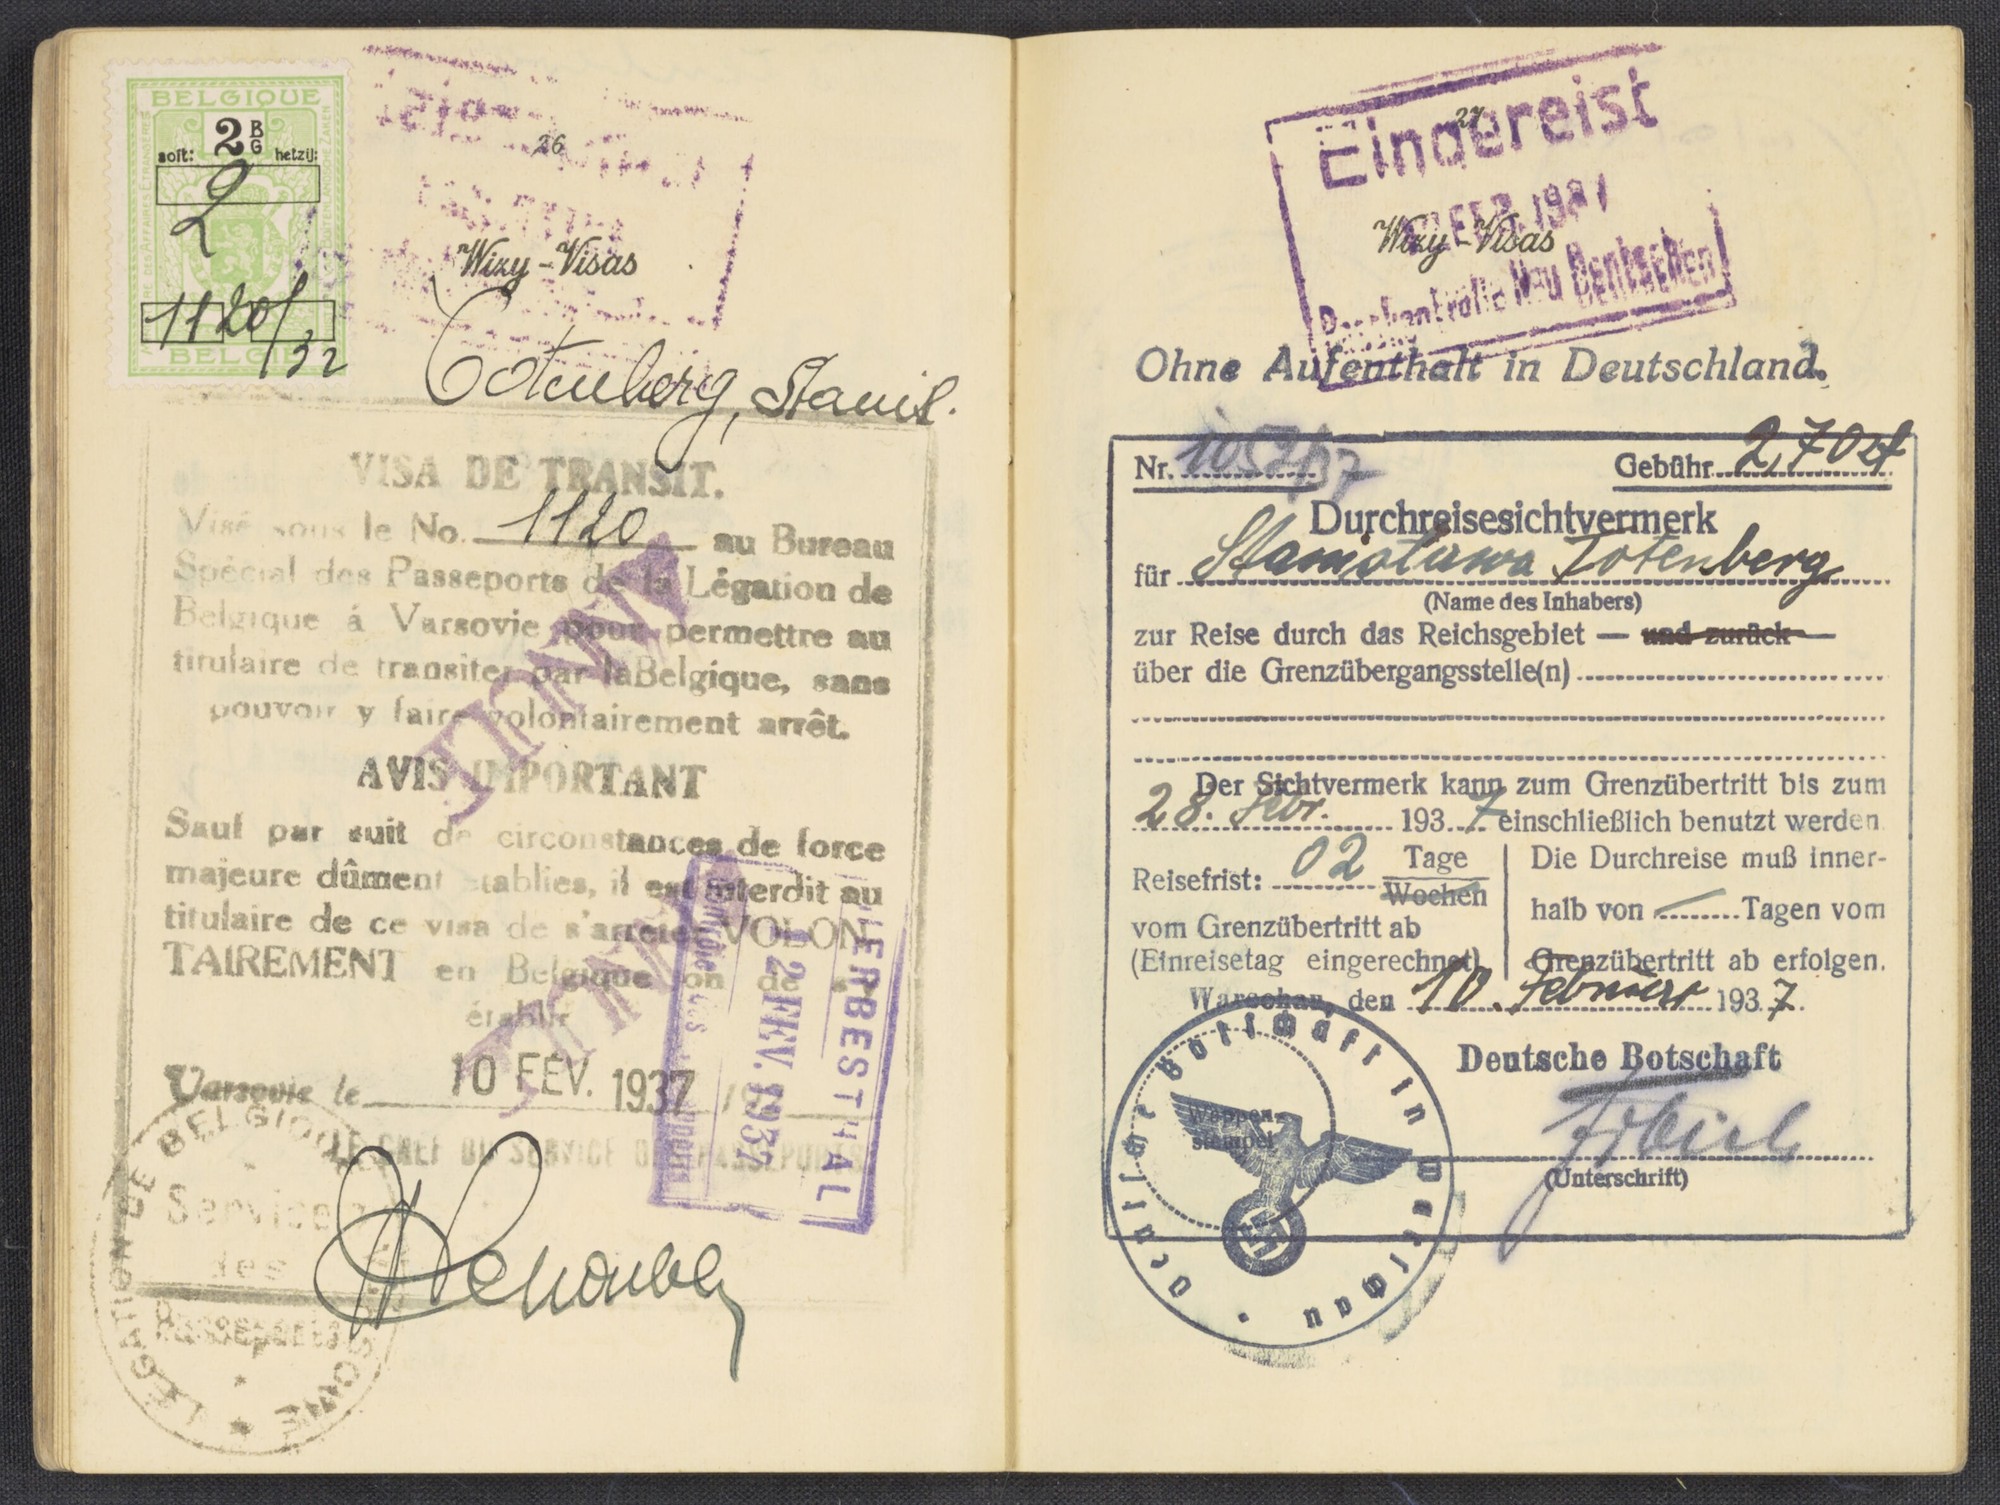 BELGIQUE
2 B
G
soit: hetzij:
2
1120/
/32
BELGIË
26
Wizy - Visas
Totenberg, Stanisł.
VISA DE TRANSIT.
Visé sous le No. 1120 au Bureau
Spécial des Passeports de la Légation de
Belgique á Varsovie pour permettre au
titulaire de transiter par la Belgique, sans
pouvoir y faire volontairement arrêt.
ANNULÉ
AVIS IMPORTANT
Sauf par suit de circonstances de force
majeure dûment établies, il est interdit au
titulaire de ce visa de s'arreter VOLON
TAIREMENT en Belgique on de s'y
établir
ANNULÉ
HERBESTHAL
12 FEV. 1937
Varsovie le 10 FÉV. 1937
LE CHEF DU SERVICE DES PASSEPORTS
LÉGATION DE BELGIQUE
VARSOVIE
Service
des
PASSEPORTS
27
Eingereist
FEB. 1937
Wizy - Visas
Passkontrolle Neu Bentschen
Ohne Aufenthalt in Deutschland.
Nr. 1052/37 Gebühr 2,70 zł
Durchreisesichtvermerk
für Stanisława Totenberg
(Name des Inhabers)
zur Reise durch das Reichsgebiet — und zurück —
über die Grenzübergangsstelle(n)
Der Sichtvermerk kann zum Grenzübertritt bis zum
28. Febr. 1937 einschließlich benutzt werden
Reisefrist: 02 Tage
Wochen
vom Grenzübertritt ab
(Einreisetag eingerechnet)
Die Durchreise muß inner-
halb von — Tagen vom
Grenzübertritt ab erfolgen.
Warschau, den 10. Februar 1937.
Deutsche Botschaft
(Unterschrift)
Deutsche Botschaft in Warschau
Wappen-
stempel